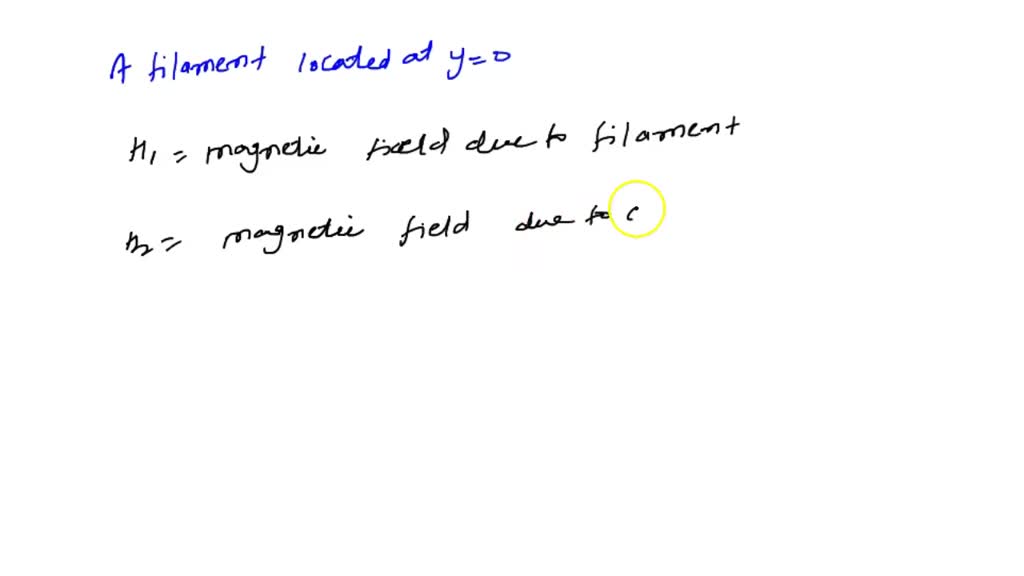 A filament located at y=0
H₁ = magnetic field due to filament
H₂ = magnetic field due to c